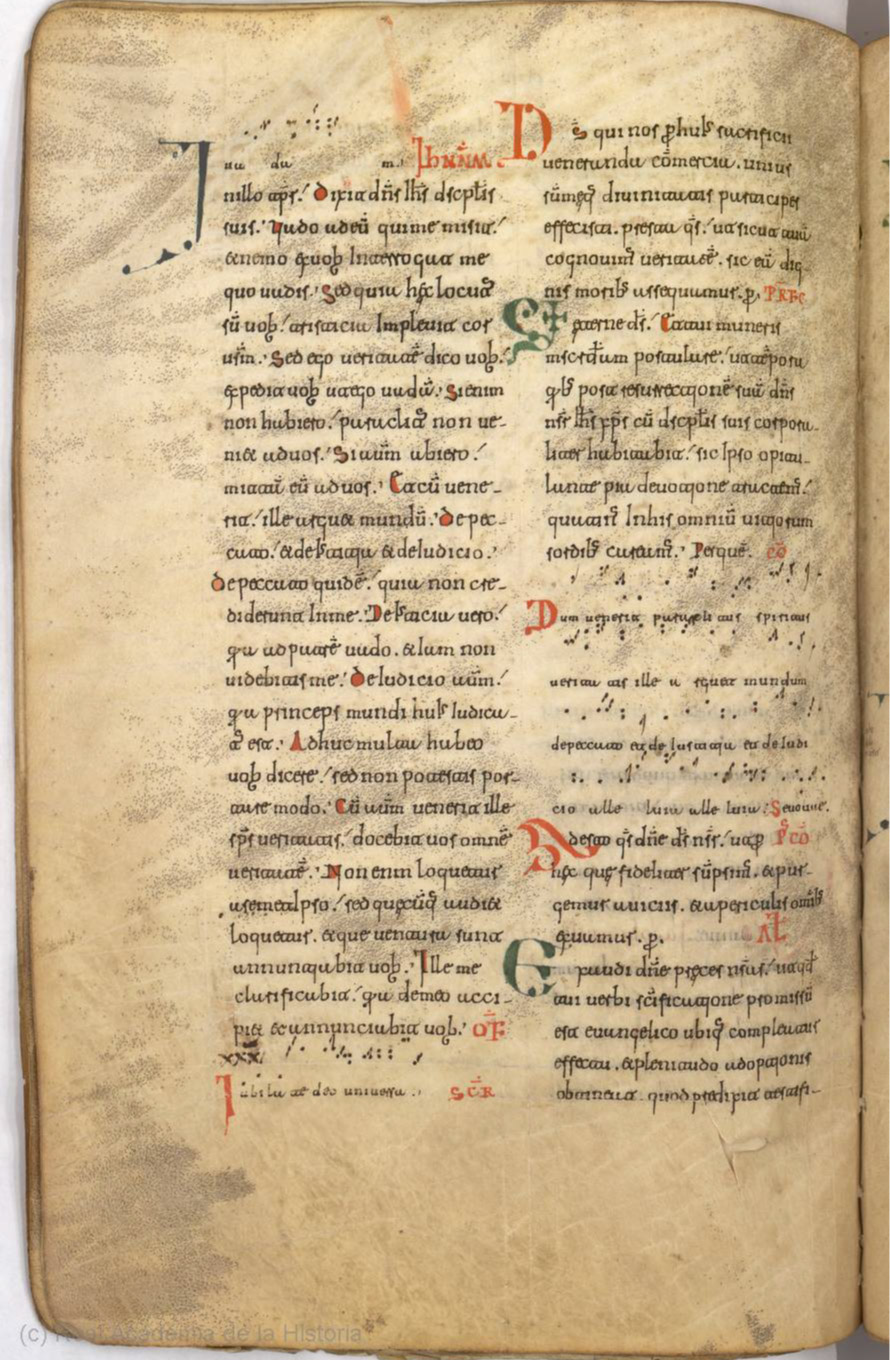 Jn
nillo tp̄s. Dixit dn̄s ihs̄ dscplīs
suis. Uado ad eū qui me misit.
et nemo ex uob̄ Interroga me
quo uadis. Sed quia hęc locut
sū uob̄. tristitia Impleuit cor
usm̄. Sed ego ueritatē dico uob̄.
expedit uob̄ ut ego uadā. Si enim
non habiero. paraclit̄ non ue-
niet ad uos. Si autm̄ abiero.
mittā eū ad uos. Et cū uene-
rit. ille arguet mundū. De pec-
cato. et de Iustitia et de Iudicio.
De peccato quidē. quia non cre-
diderunt In me. De Iustitia uero.
qa ad patrē uado. et Iam non
uidebitis me. De Iudicio autm̄.
qa princeps mundi huīs Iudica-
t̄ est. Adhuc multa habeo
uob̄ dicere. sed non potestis por-
tare modo. Cū autm̄ uenerit ille
sps̄ ueritatis. docebit uos omnē
ueritatē. Non enim loquetur
a semetIpso. sed quęcūq̄ audiet
loquetur. et que uentura sunt
annuntiabit uob̄. Ille me
clarificabit. qa de meo acci-
piet et annunciabit uob̄. OF̄
Iubila te deo uniuersa. SCR̄
Ds̄ qui nos p̄ huīs sacrificii
ueneranda cōmercia. unius
sūmęq̄ diuinitatis participes
effecisti. presta qs̄. ut sicut tuā
cognouim̄ ueritatē. sic eā dig-
nis morib̄ assequamur. p̄. PRFC
eterne ds̄. Et tui muneris
postulare. ut tēpora
qb̄ post resurrectionē suā dn̄s
nsr̄ ihs̄ xp̄s cū dscplīs suis corpora-
liter habitabit. sic Ipso opitu-
lante pia deuotione tractem̄.
quatin̄ In his omniū uitiorum
sordib̄ careamr̄. Per quē. cō
Dum uenerit paracli tus spiritus
ueritatis ille a rguet mundum
de peccato et de Iustitia et de Iudi
cio alle luia alle luia. Seuouae.
Adesto qs̄ dn̄e ds̄ nsr̄. ut p̄ Pcō
hęc quę fideliter sūpsim̄. et pur-
gemur a uitiis. et a periculis omīb̄
exuamur. p̄. AL̄
Exaudi dn̄e pręces nsās. ut qd̄
tui uerbi scīficatione promissū
est euangelico ubiq̄ compleatur
effectu. et plenitudo adoptionis
obtineat. quod predixit testifi-
(c) Real Academia de la Historia